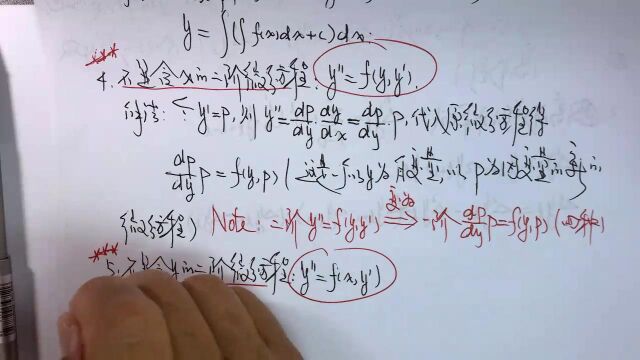 y = ∫(∫f(x)dx+c)dx.
4. 不显含x的二阶微分方程: y''=f(y,y').
解法: 令 y'=p, 则 y''=dp/dy·dy/dx=dp/dy·p, 代入原微分方程得
dp/dy p=f(y,p) (这是一个以y为自变量, 以p为因变量的一阶
微分方程) Note: 二阶 y''=f(y,y') ⟹ 一阶 dp/dy p=f(y,p) (可解)
5. 不显含y的二阶微分方程: y''=f(x,y')